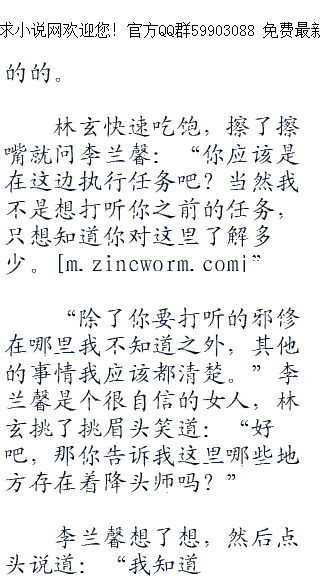 求小说网欢迎您！官方QQ群59903088 免费最新
的的。
林玄快速吃饱，擦了擦
嘴就问李兰馨：“你应该是
在这边执行任务吧？当然我
不是想打听你之前的任务，
只想知道你对这里了解多
少。[m.zincworm.com]”
“除了你要打听的邪修
在哪里我不知道之外，其他
的事情我应该都清楚。”李
兰馨是个很自信的女人，林
玄挑了挑眉头笑道：“好
吧，那你告诉我这里哪些地
方存在着降头师吗？”
李兰馨想了想，然后点
头说道：“我知道